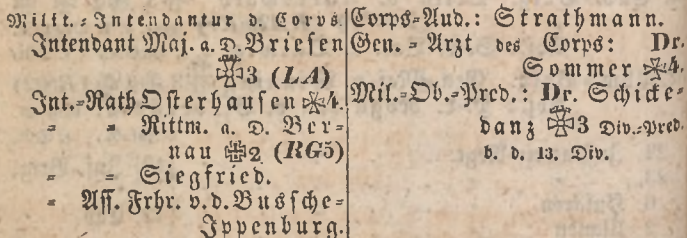 Milit.-Intendantur d. Corps
Intendant Maj. a. D. Briesen
3 (LA)
Int.-Rath Osterhausen 4.
= = Rittm. a. D. Ber-
nau 2 (RG5)
= = Siegfried.
= Ass. Frhr. v. d. Bussche-
Ippenburg.
Corps-Aud.: Strathmann.
Gen.-Arzt des Corps: Dr.
Sommer 4.
Mil.-Ob.-Pred.: Dr. Schicke-
danz 3 Div.-Pred.
b. d. 13. Div.